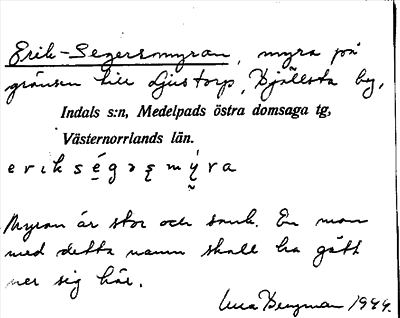 Erik-Segersmyran, myra på
gränsen till Ljustorp, Bjällsta by,
Indals s:n, Medelpads östra domsaga tg,
Västernorrlands län.
Myran är stor och sank. En man
med detta namn skall ha gått
ner sig här.
Bergman 1944.